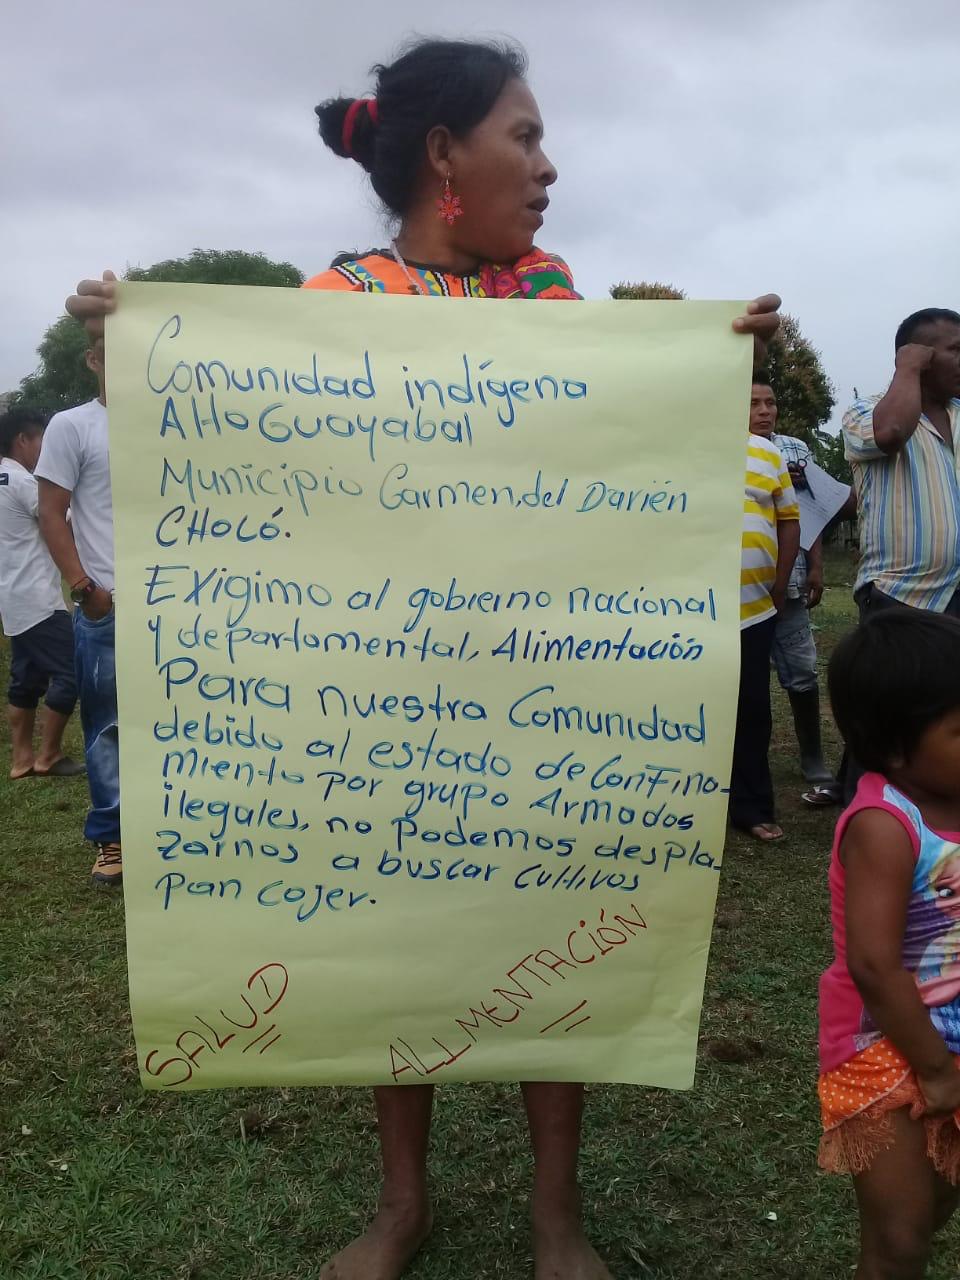 Comunidad indígena
Alto Guayabal
Municipio Carmen, del Darién
CHOCÓ.
Exigimo al gobierno nacional
y departamental, Alimentación
Para nuestra Comunidad
debido al estado de Confina-
miento por grupo Armados
ilegales, no Podemos despla-
zarnos a buscar Cultivos
pan cojer.
SALUD
ALIMENTACIÓN